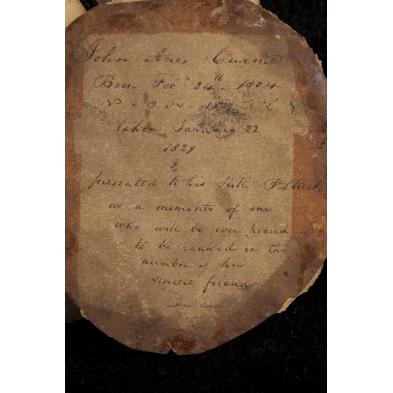 John Acres
Born Feb 24th 1804
taken January 22
1829
&
presented to his Sister
as a memento of one
who will be ever proud
to be ranked in the
number of her
sincere friends